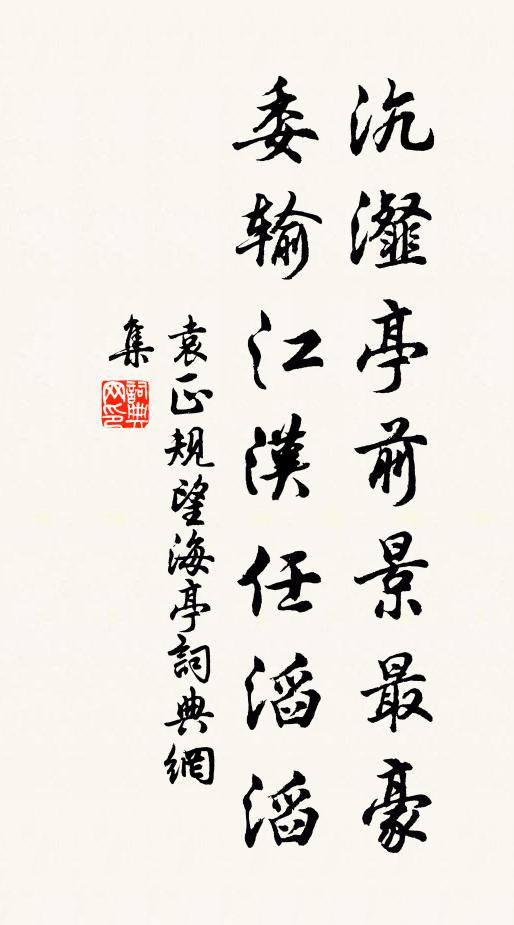 沆瀣亭前景最豪
委输江漢任滔滔
袁正規望海亭詞典網
集
詞典
网印